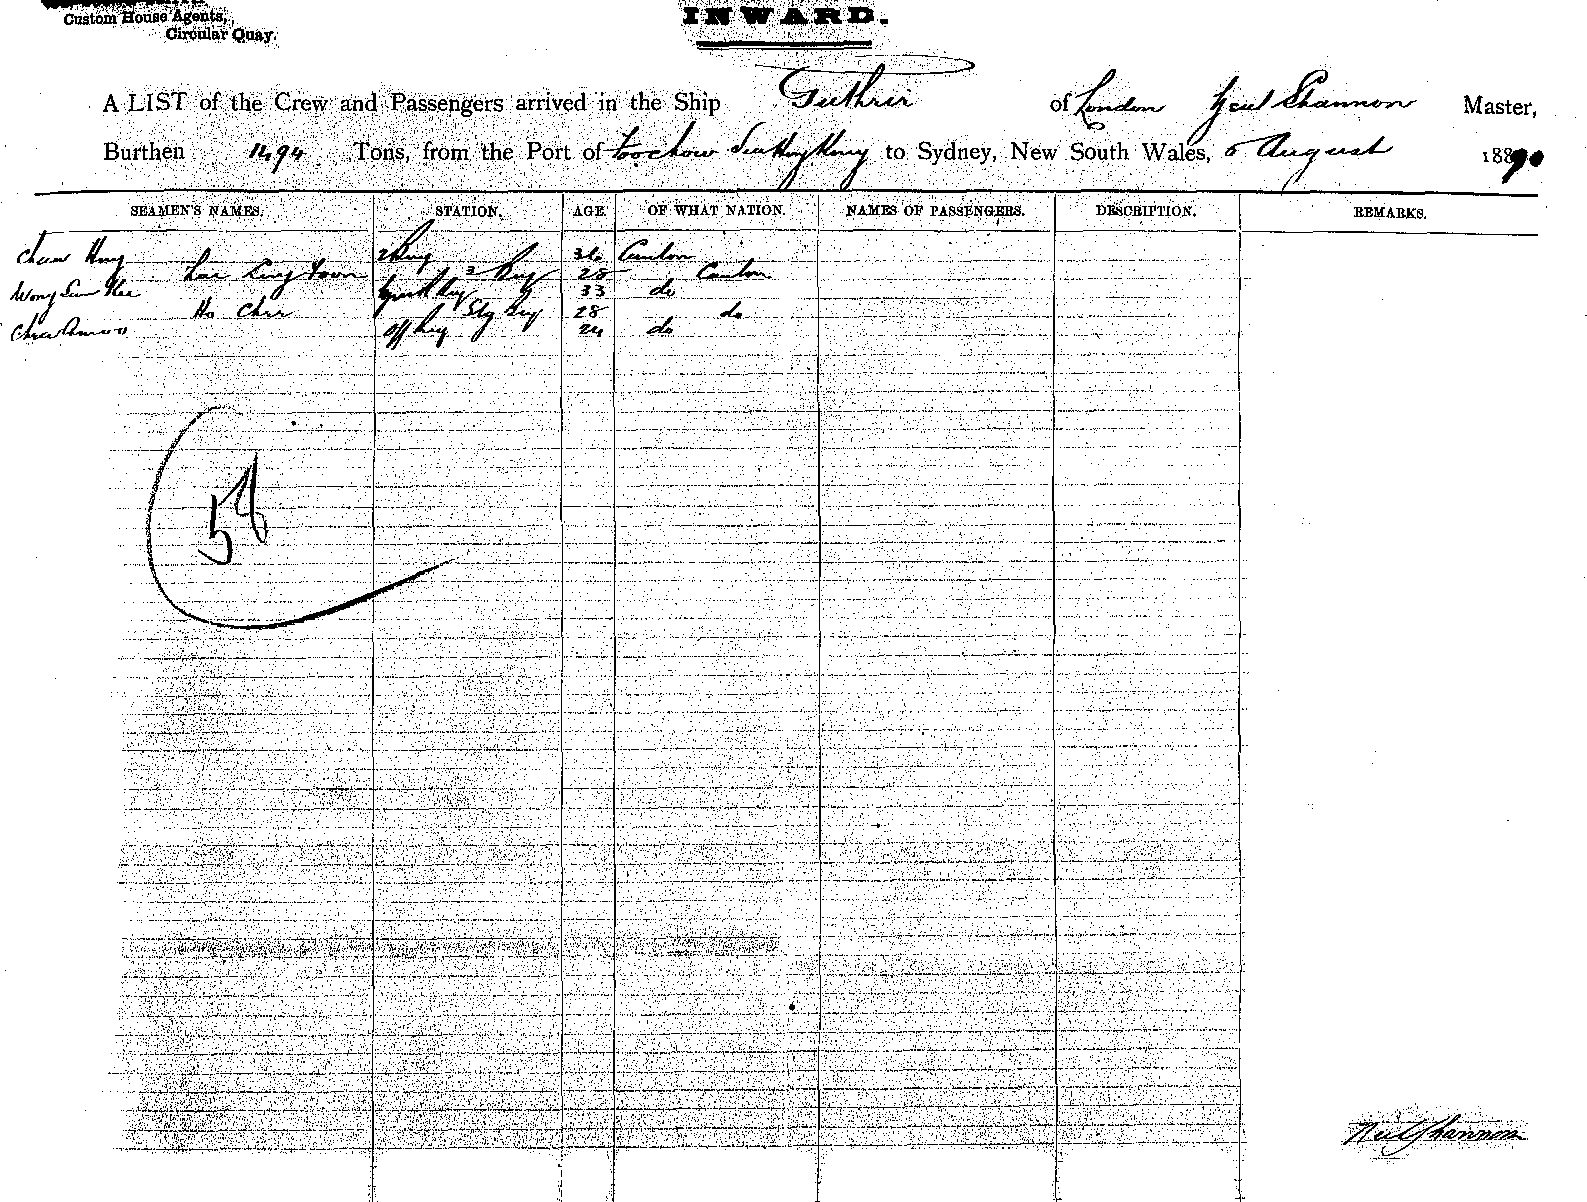 Custom House Agents,
Circular Quay.
INWARD.
A LIST of the Crew and Passengers arrived in the Ship Guthrie of London Neil Shannon Master,
Burthen 1494 Tons, from the Port of Foochow Via Hong Kong to Sydney, New South Wales, 6 August 1890
SEAMEN'S NAMES. STATION. AGE. OF WHAT NATION. NAMES OF PASSENGERS. DESCRIPTION. REMARKS.
Hong 2 Boy 36 Canton
3 Boy 28 Canton
Wong 33 do
Ho Chee Boy 28 do
24 do
54
Neil Shannon